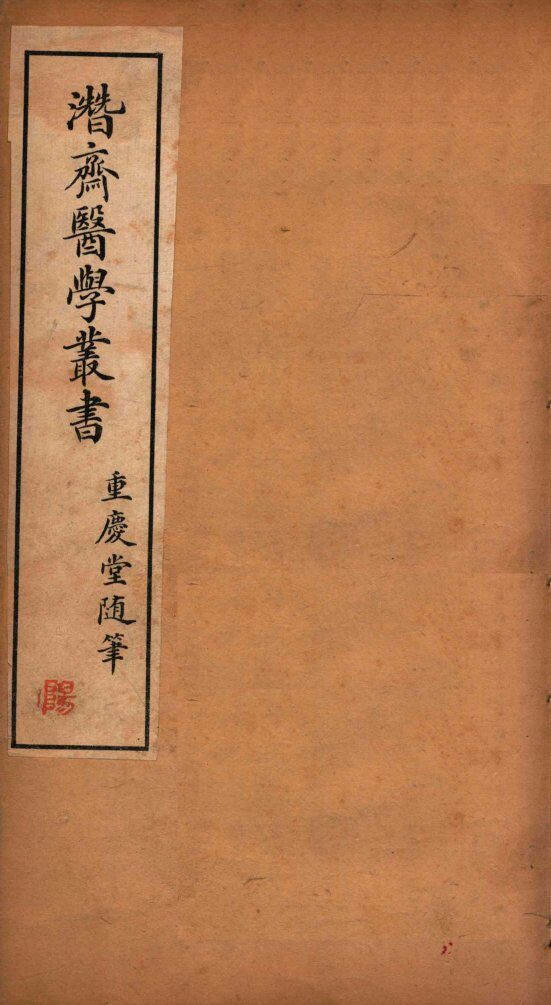 潛齋醫學叢書
重慶堂随筆